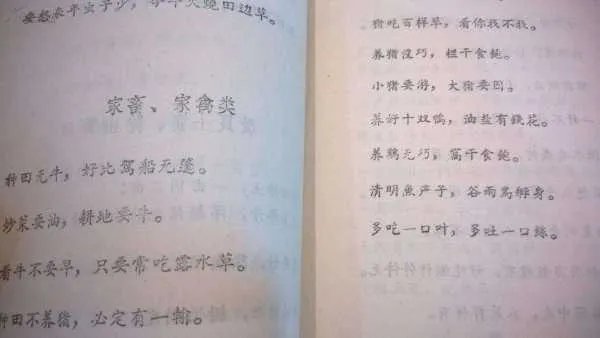 要想来年虫子少，今年火烧田边草。
家畜、家禽类
种田无牛，好比驾船无篷。
炒菜要油，耕地要牛。
看牛不要早，只要常吃露水草。
种田不养猪，必定有一输。
猪吃百样草，看你找不找。
养猪没巧，栏干食饱。
小猪要游，大猪要囚。
养好十双鸭，油盐有钱花。
养鸡无巧，窝干食饱。
清明鱼产子，谷雨鸟孵身。
多吃一口叶，多吐一口丝。